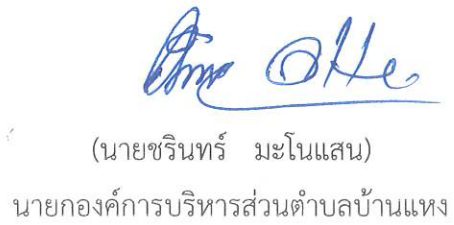 (นายชรินทร์ มะโนแสน)
นายกองค์การบริหารส่วนตำบลบ้านแหง